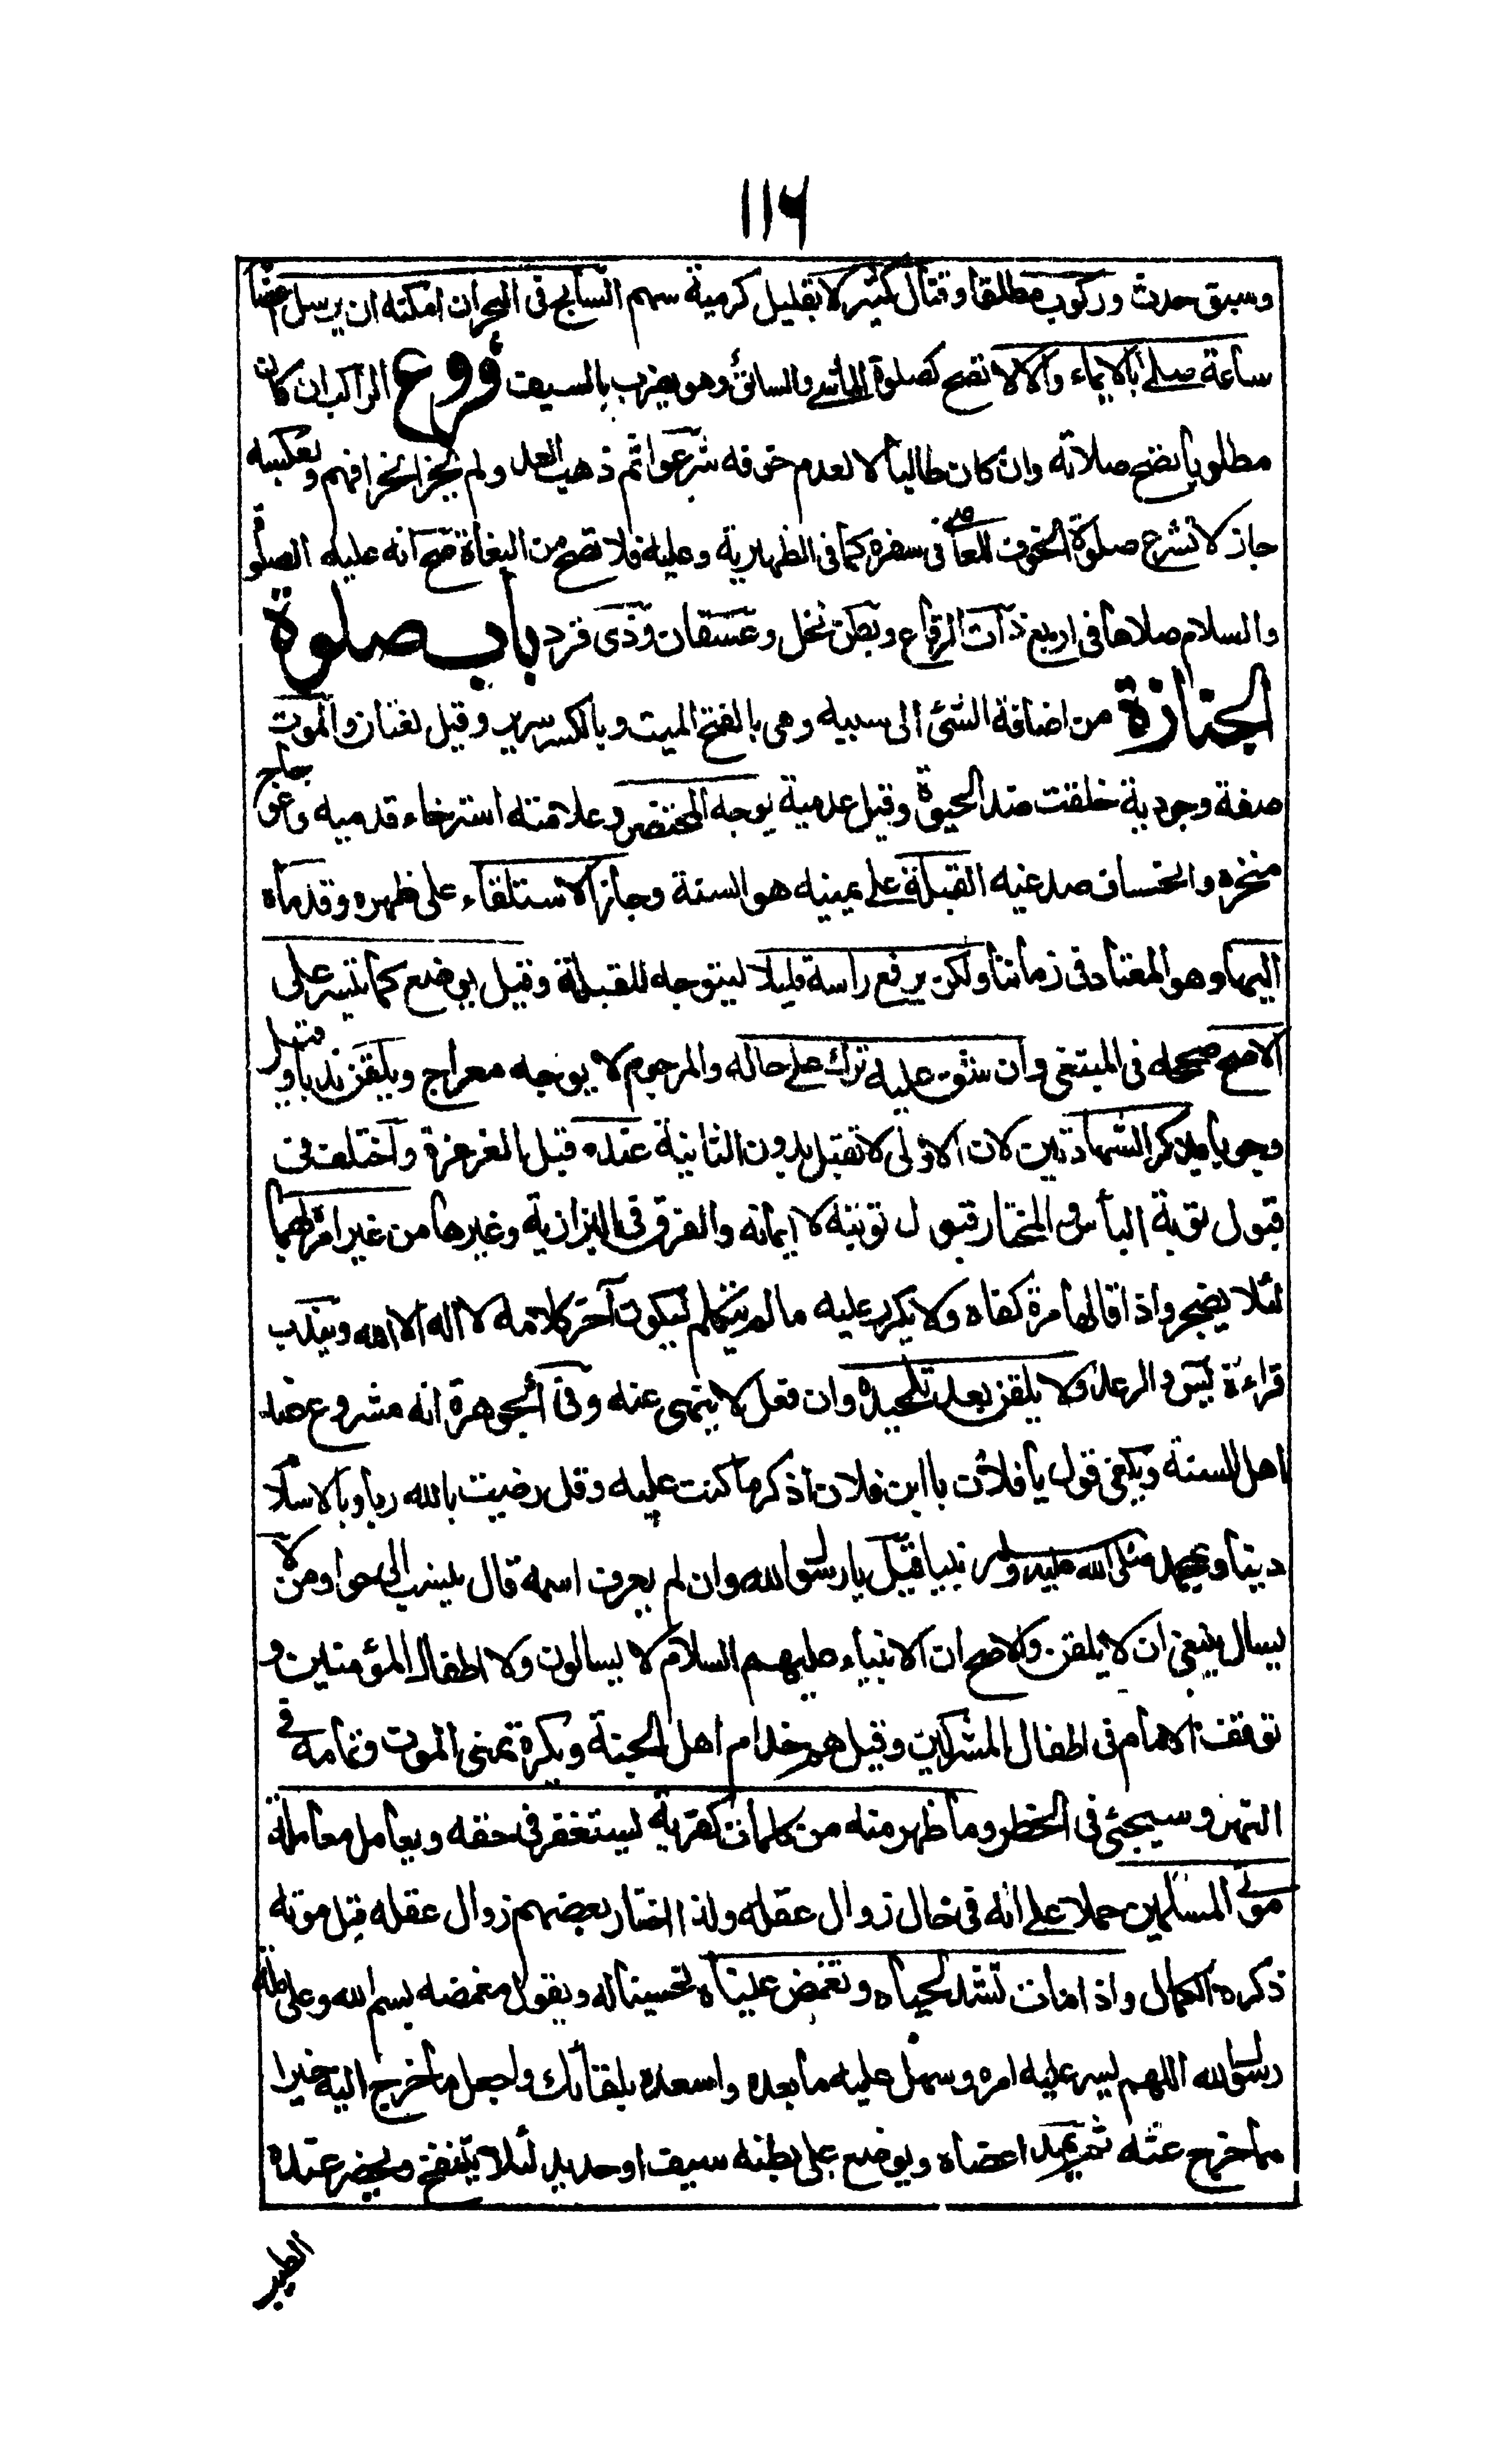 ١١٦
وسبق حدث وركوب مطلقا وقتال كثير لا بقليل كرمية سهم السابح فى البحر ان امكنه ان يرسل اعضاءه
ساعة صلى بالايماء والا لا تصح كصلوة الماشى والسائف وهو يضرب بالسيف فروع الراكب ان كان
مطلوبا تصح صلاته وان كان طالبا لا لعدم خوفه شرعوا ثم ذهب العدو لم يجز انحرافهم وبعكسه
جاز لا تشرع صلوة الخوف للعاصى فى سفره كما فى الظهيرية وعليه فلا تصح من البغاة صح انه عليه الصلوة
والسلام صلاها فى اربع ذات الرقاع وبطن نخل وعسفان وذى قرد باب صلوة
الجنازة من اضافة الشئ الى سببه وهى بالفتح الميت وبالكسر سرير وقيل لغتان والموت
صفة وجودية خلقت ضد الحيوة وقيل عدمية يوجه المحتضر وعلامته استرخاء قدميه واعوجاج
منخره وانخساف صدغيه القبلة على يمينه هو السنة وجاز الاستلقاء على ظهره وقدماه
اليها وهو المعتاد فى زماننا ولكن يرفع راسه قليلا ليتوجه للقبلة وقيل يوضع كما تيسر على
الاصح صححه فى المبتغى وان شق عليه ترك على حاله والمرجوم لا يوجه معراج ويلقن ندبا وقيل
وجوبا بذكر الشهادتين لان الاولى لا تقبل بدون الثانية عنده قبل الغرغرة واختلف فى
قبول توبة الباس والمختار قبول توبته لا ايمانه والفرق فى البزازية وغيرها من غير امره بها
لئلا يضجر واذا قالها مرة كفاه ولا يكرر عليه ما لم يتكلم ليكون آخر كلامه لا اله الا الله ويندب
قراءة يس والرعد ولا يلقن بعد تلحيده وان فعل لا ينهى عنه وفى الجوهرة انه مشروع عند
اهل السنة ويكفى قول يا فلان يا ابن فلان اذكر ما كنت عليه وقل رضيت بالله ربا وبالاسلام
دينا وبمحمد صلى الله عليه وسلم نبيا قيل يا رسول الله وان لم يعرف اسمه قال ينسب الى حوا ومن لا
يسال ينبغى ان لا يلقن والاصح ان الانبياء عليهم السلام لا يسالون ولا اطفال المؤمنين و
توقف الامام فى اطفال المشركين وقيل هم خدام اهل الجنة ويكره تمنى الموت وتمامه فى
النهر وسيجئ فى الحظر وما ظهر منه من كلمات كفرية يستغفر فى حقه ويعامل معاملة
موتى المسلمين حملا على انه فى حال زوال عقله ولذا اختار بعضهم زوال عقله قبل موته
ذكره الكمال واذا مات تشد لحياه وتغمض عيناه تحسينا له ويقول مغمضه بسم الله وعلى ملة
رسول الله اللهم يسر عليه امره وسهل عليه ما بعده واسعده بلقائك واجعل ما خرج اليه خيرا
مما خرج عنه ثم يمد اعضاه ويوضع على بطنه سيف او حديد لئلا ينتفخ ويحضر عنده
الطيب